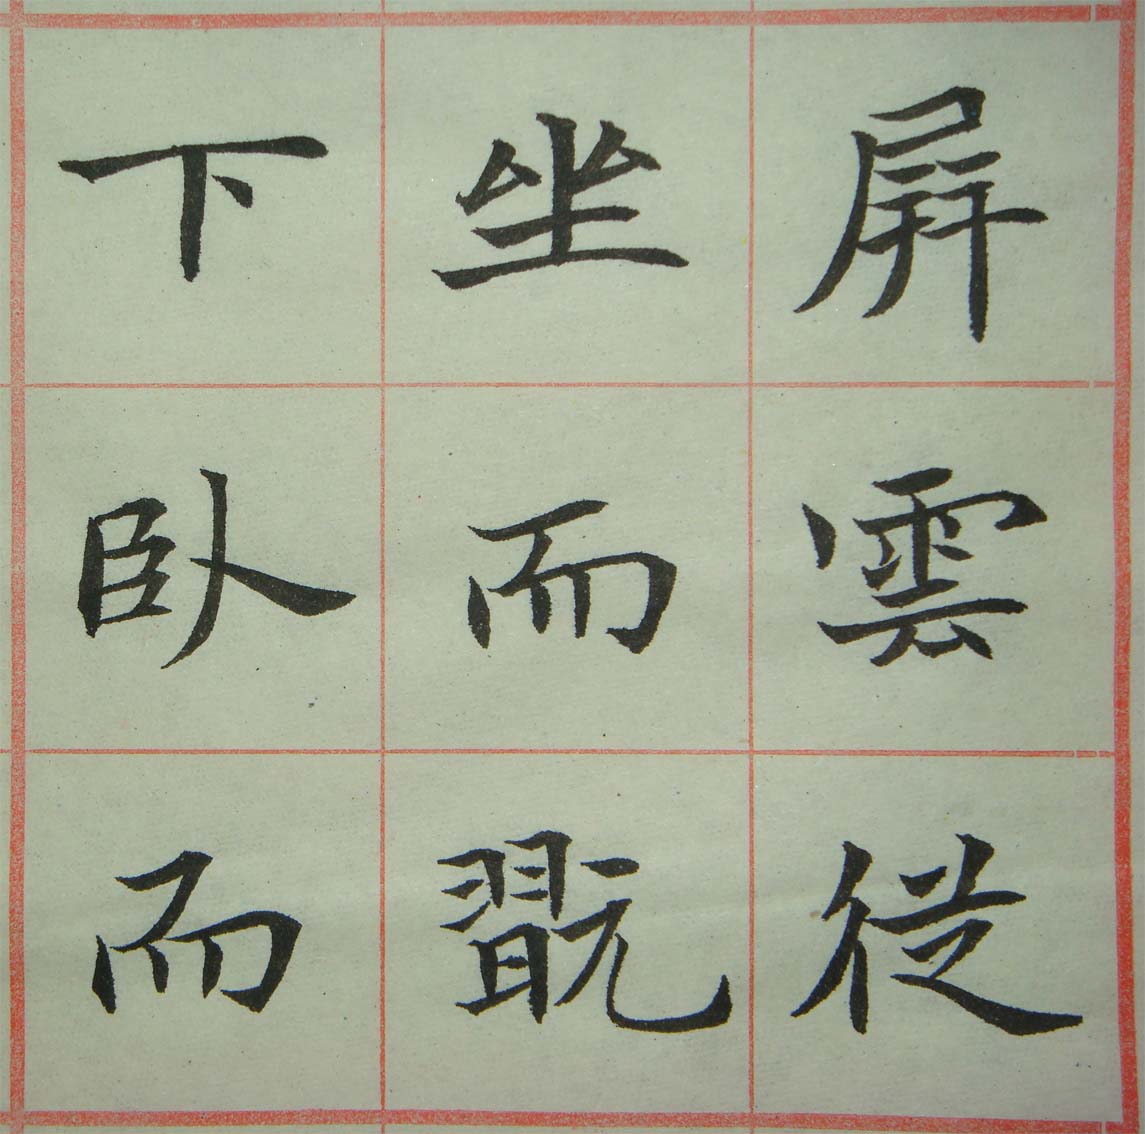 屏雲従
坐而翫
下臥而